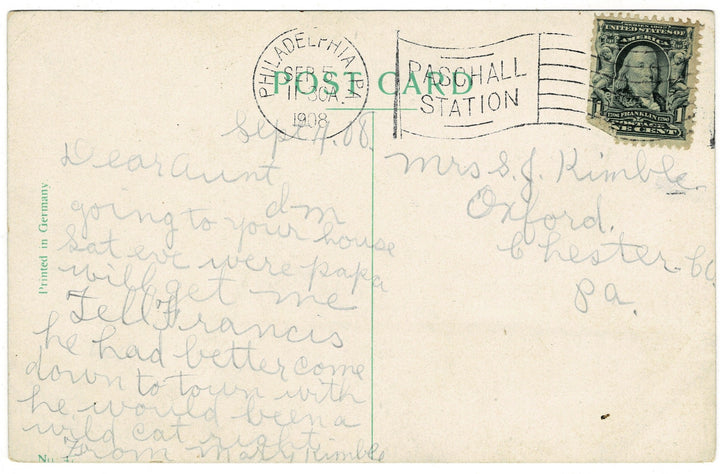 PHILADELPHIA, PA.
SEP 5
11 30A
1908
PASCHALL
STATION
SERIES 1902
UNITED STATES OF
AMERICA
FRANKLIN
POSTAGE
1 ONE CENT 1
POST CARD
Printed in Germany
Sept 4. 08.
Dear Aunt
d-m
going to your house
Sat eve were papa
will get me
Tell Francis
he had better come
down to town with
he would been a
wild cat right
From Mary Kimble
Mrs S. J. Kimble
Oxford.
Chester Co
Pa.